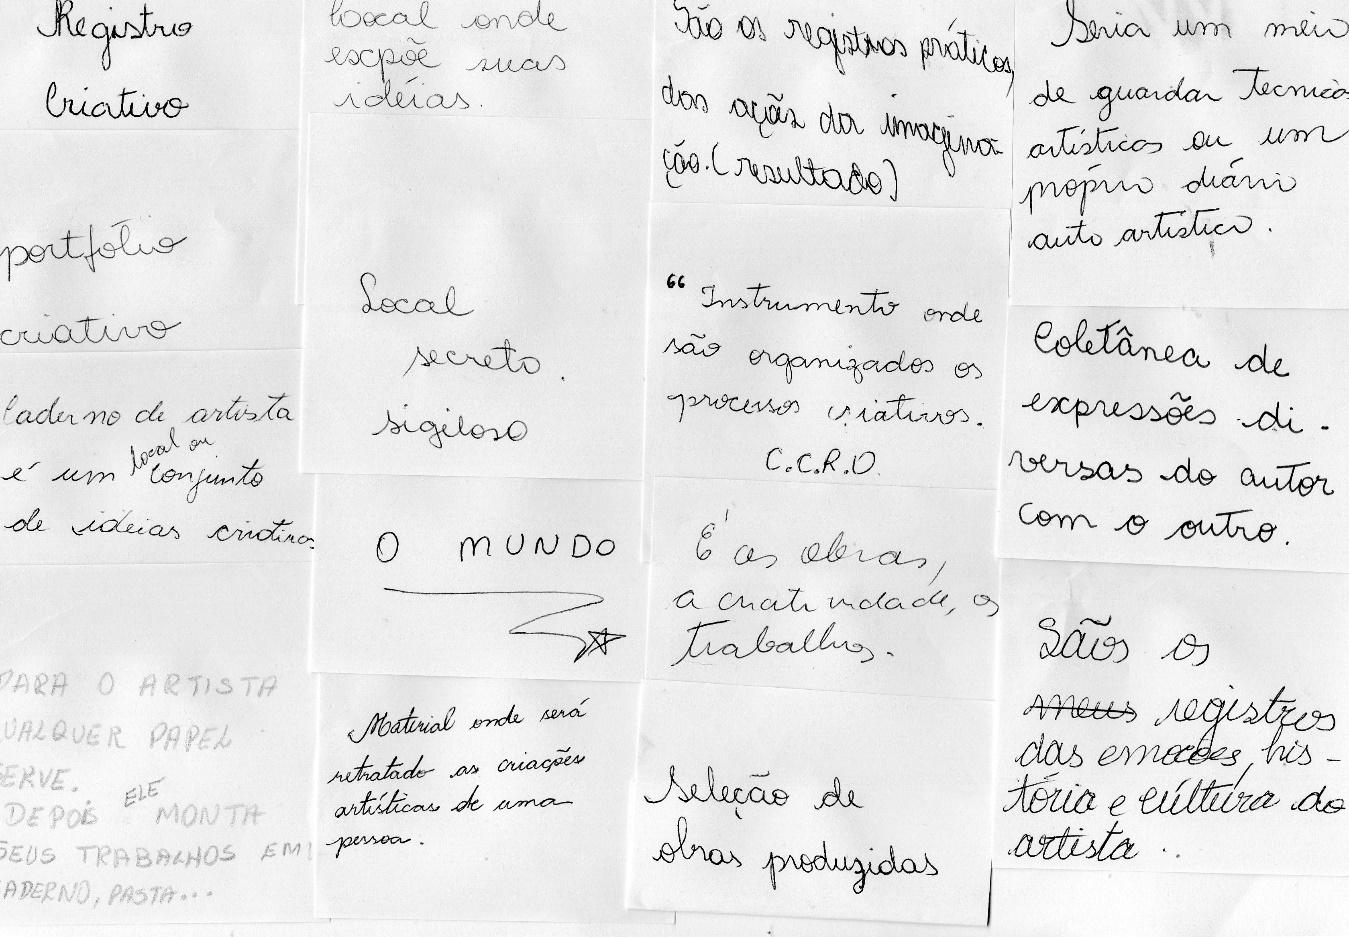 Registro
Criativo
portfólio
criativo
Caderno de artista
é um local ou conjunto
de ideias criativas
PARA O ARTISTA
QUALQUER PAPEL
SERVE.
DEPOIS ELE MONTA
SEUS TRABALHOS EM
CADERNO, PASTA...
Local onde
expõe suas
idéias.
Local
secreto.
sigiloso
O MUNDO
Material onde será
retratado as criações
artísticas de uma
pessoa.
São os registros práticos,
das açõs da imagina-
ção. (resultado)
“Instrumento onde
são organizados os
processos criativos.
C.C.R.O.
É as obras,
a criatividade, os
trabalhos.
Seleção de
obras produzidas
Seria um meio
de guardar Tecnicas
artísticas ou um
próprio diário
auto artístico.
Coletânea de
expressões di-
versas do autor
com o outro.
Sãos os
meus registros
das emoções, his-
tória e cúltura do
artista..